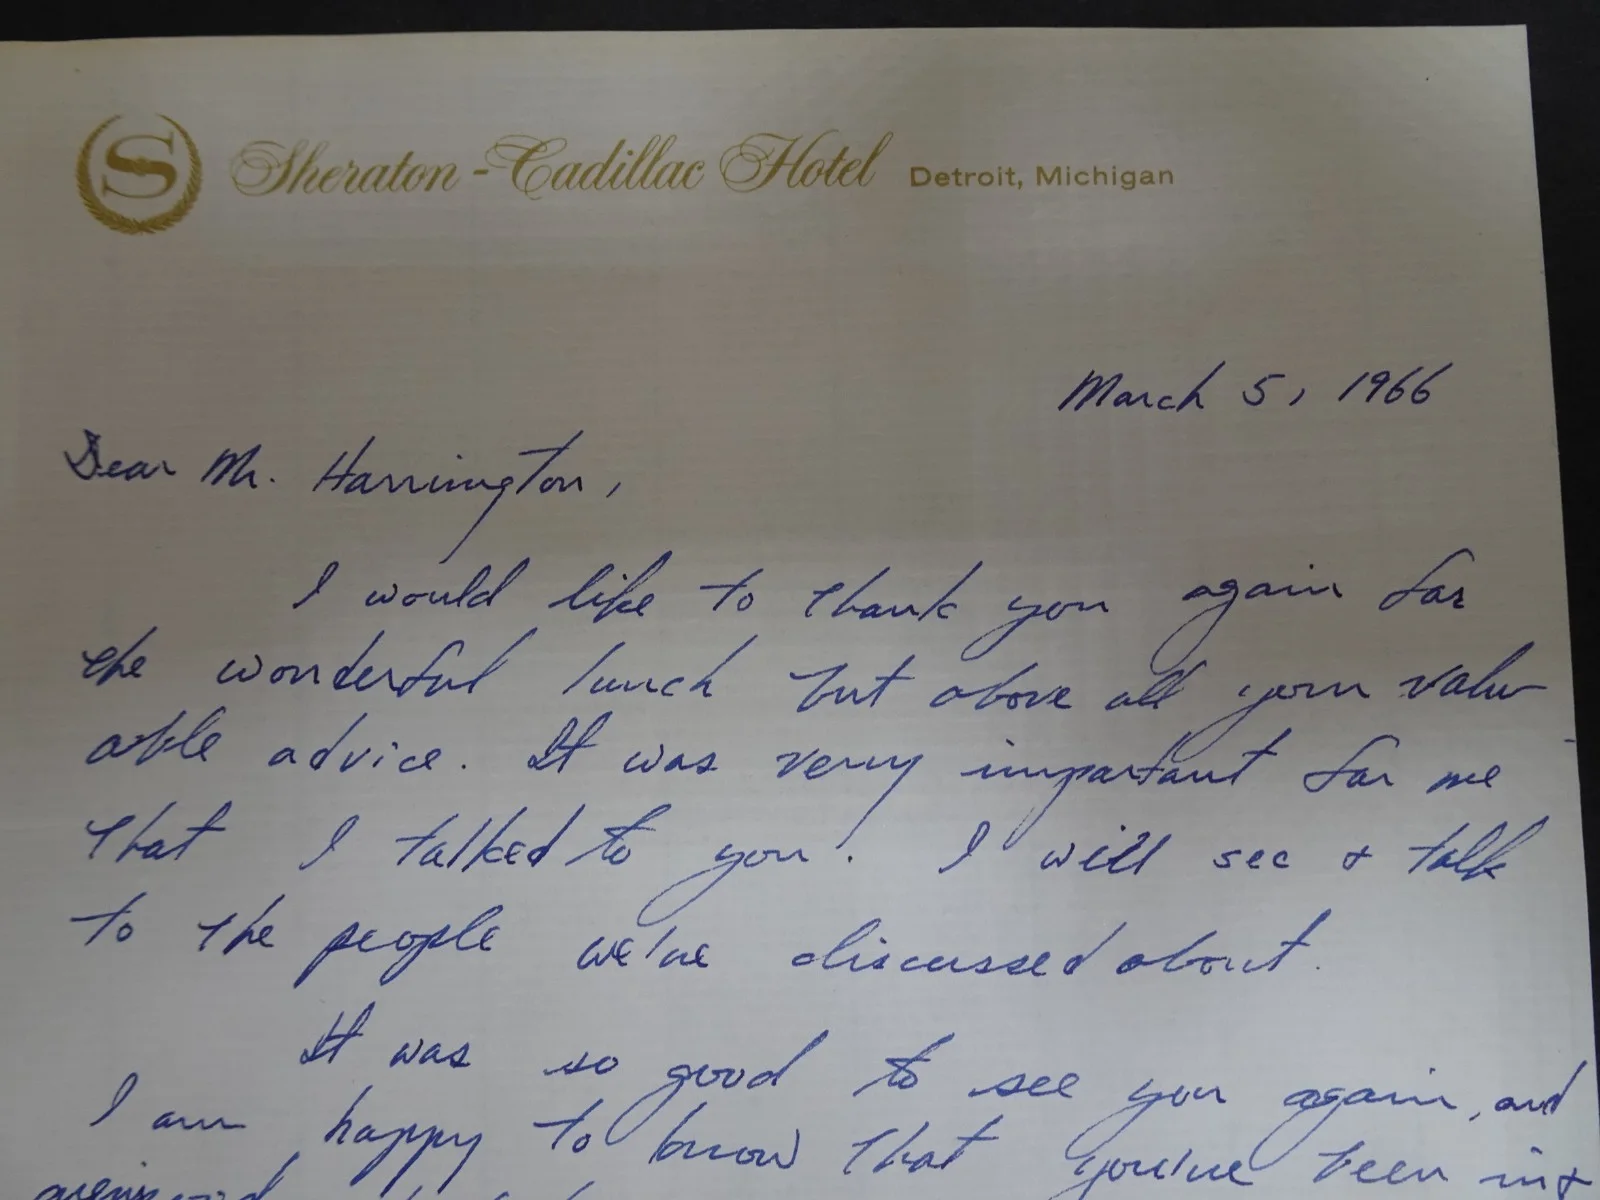 S Sheraton-Cadillac Hotel Detroit, Michigan
March 5, 1966
Dear Mr. Harrington,
I would like to thank you again for
the wonderful lunch but above all your valu-
able advice. It was very important for me
that I talked to you. I will see & talk
to the people we've discussed about.
It was so good to see you again, and
I am happy to know that you've been in